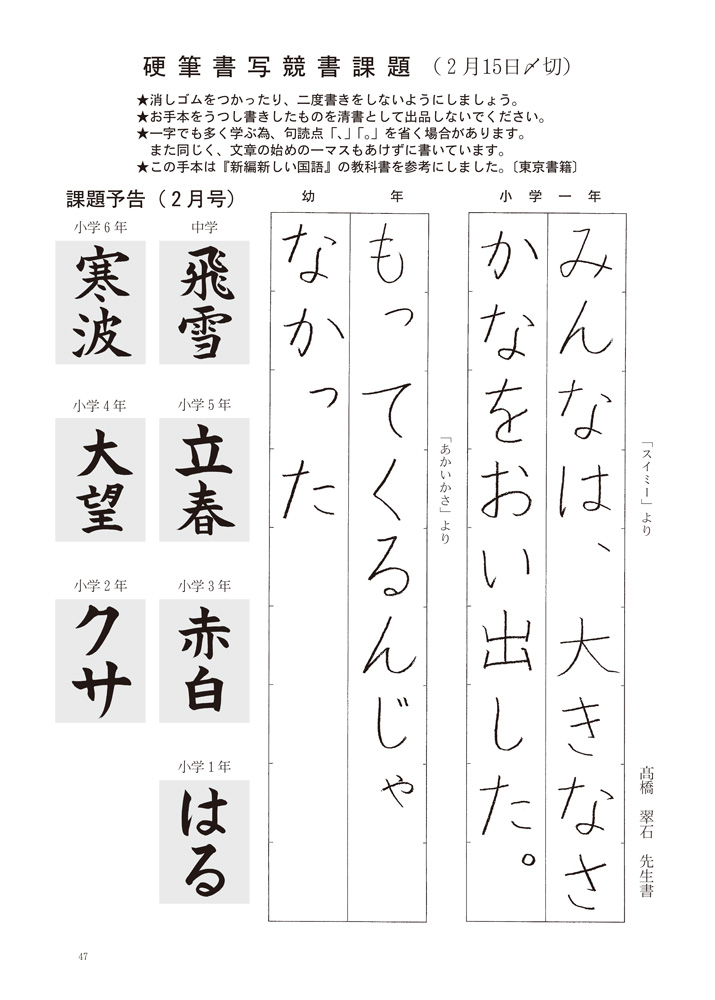 硬筆書写競書課題（２月15日〆切）
★消しゴムをつかったり、二度書きをしないようにしましょう。
★お手本をうつし書きしたものを清書として出品しないでください。
★一字でも多く学ぶ為、句読点「、」「。」を省く場合があります。
また同じく、文章の始めの一マスもあけずに書いています。
★この手本は『新編新しい国語』の教科書を参考にしました。〔東京書籍〕
小学一年
「スイミー」より
髙橋　翠石　先生書
みんなは、大きなさ
かなをおい出した。
幼年
「あかいかさ」より
もってくるんじゃ
なかった
課題予告（２月号）
中学
飛雪
小学６年
寒波
小学５年
立春
小学４年
大望
小学３年
赤白
小学２年
クサ
小学１年
はる
47